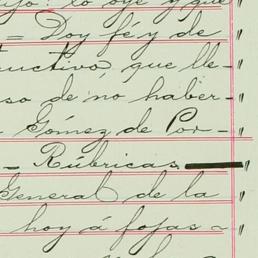 lo oye y que
= Doy fé y de
ructivo, que lle-
so de no haber-
Gómez de Cor-
- Rúbricas.
General de la
hoy á fojas